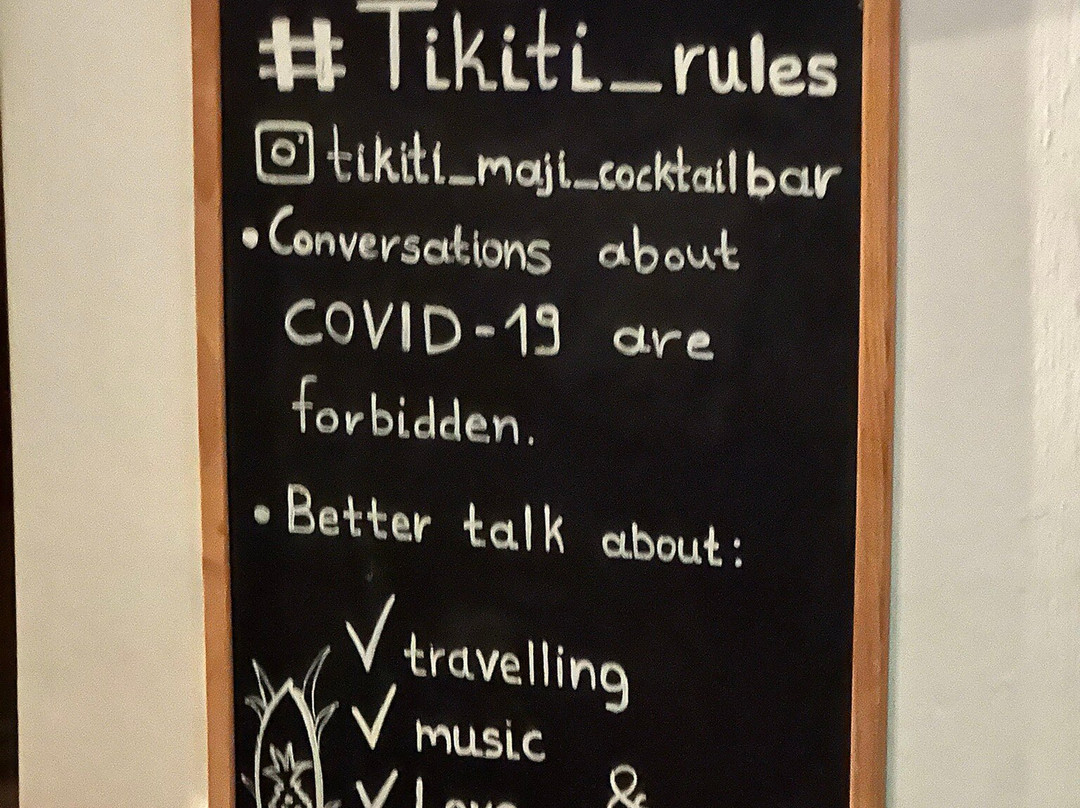 #Tikiti_rules
tikiti_maji_cocktailbar
• Conversations about
COVID-19 are
forbidden.
• Better talk about:
✓ travelling
✓ music
✓ &